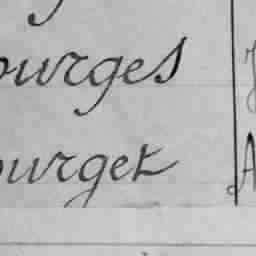 ourges
ourget